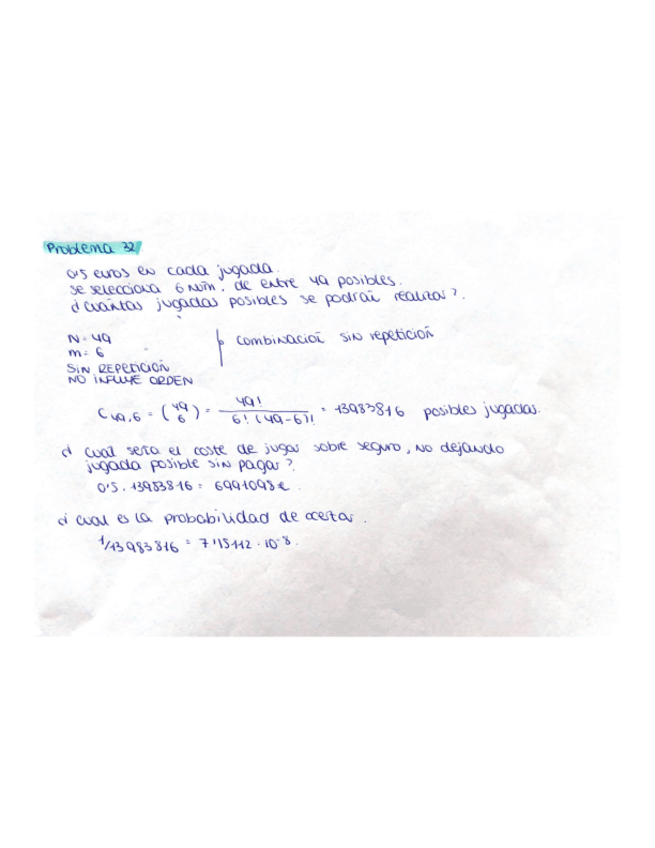 Problema 32
0'5 euros en cada jugada.
se selecciona 6 núm. de entre 49 posibles.
¿cuántas jugadas posibles se podrán realizar?
N = 49
m = 6
SIN REPETICIÓN
NO INFLUYE ORDEN
combinación sin repetición
C49,6 = (49 6) = 49! / 6! (49-6)! = 13983816 posibles jugadas.
¿ cual sería el coste de jugar sobre seguro, no dejando
jugada posible sin pagar?
0'5 · 13983816 = 6991098€
¿ cual es la probabilidad de acertar.
1/13983816 = 7'15112 · 10^-8.